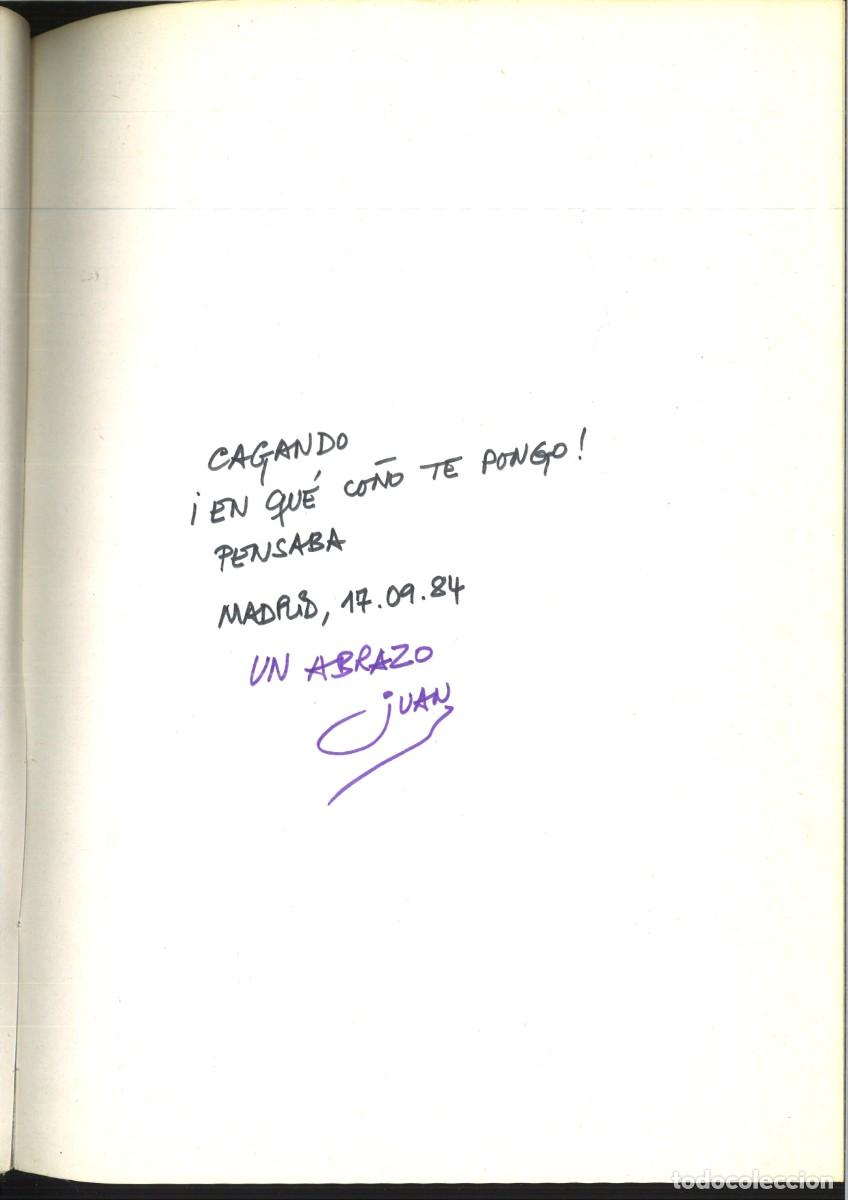 CAGANDO
¡EN QUÉ COÑO TE PONGO!
PENSABA
MADRID, 17.09.84
UN ABRAZO
JUAN
todocoleccion